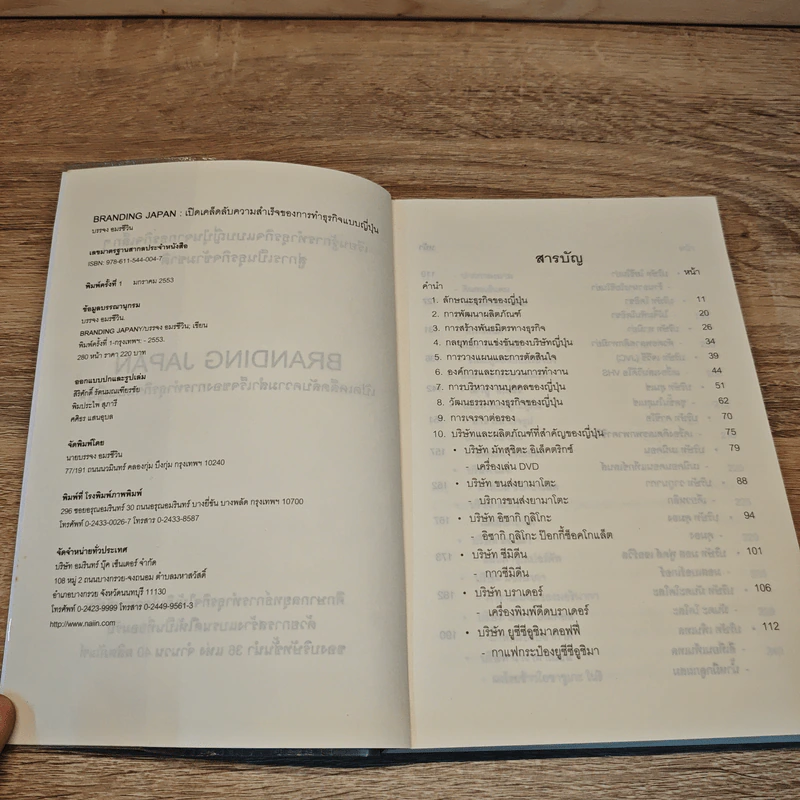 BRANDING JAPAN : เปิดเคล็ดลับความสำเร็จของการทำธุรกิจแบบญี่ปุ่น
บรรจง อมรชีวิน
เลขมาตรฐานสากลประจำหนังสือ
ISBN: 978-611-544-004-7
พิมพ์ครั้งที่ 1 มกราคม 2553
ข้อมูลบรรณานุกรม
บรรจง อมรชีวิน.
BRANDING JAPANY/บรรจง อมรชีวิน; เขียน
พิมพ์ครั้งที่ 1-กรุงเทพฯ: - 2553.
280 หน้า ราคา 220 บาท
ออกแบบปกและรูปเล่ม
ศิริศักดิ์ รัตนมณเฑียรชัย
พิมประไพ สุภารี
คศิธร แสนอุบล
จัดพิมพ์โดย
นายบรรจง อมรชีวิน
77/191 ถนนนวมินทร์ คลองกุ่ม บึงกุ่ม กรุงเทพฯ 10240
พิมพ์ที่ โรงพิมพ์ภาพพิมพ์
296 ซอยอรุณอมรินทร์ 30 ถนนอรุณอมรินทร์ บางยี่ขัน บางพลัด กรุงเทพฯ 10700
โทรศัพท์ 0-2433-0026-7 โทรสาร 0-2433-8587
จัดจำหน่ายทั่วประเทศ
บริษัท อมรินทร์ บุ๊ค เซ็นเตอร์ จำกัด
108 หมู่ 2 ถนนบางกรวย-จงถนอม ตำบลมหาสวัสดิ์
อำเภอบางกรวย จังหวัดนนทบุรี 11130
โทรศัพท์ 0-2423-9999 โทรสาร 0-2449-9561-3
http://www.naiin.com
สารบัญ
หน้า
คำนำ
1. ลักษณะธุรกิจของญี่ปุ่น 11
2. การพัฒนาผลิตภัณฑ์ 20
3. การสร้างพันธมิตรทางธุรกิจ 26
4. กลยุทธ์การแข่งขันของบริษัทญี่ปุ่น 34
5. การวางแผนและการตัดสินใจ 39
6. องค์การและกระบวนการทำงาน 44
7. การบริหารงานบุคคลของญี่ปุ่น 51
8. วัฒนธรรมทางธุรกิจของญี่ปุ่น 62
9. การเจรจาต่อรอง 70
10. บริษัทและผลิตภัณฑ์ที่สำคัญของญี่ปุ่น 75
• บริษัท มัทสุชิตะ อิเล็คตริกซ์ 79
- เครื่องเล่น DVD
• บริษัท ขนส่งยามาโตะ 88
- บริการขนส่งยามาโตะ
• บริษัท อิซากิ กูลิโกะ 94
- อิซากิ กูลิโกะ ป๊อกกี้ช็อคโกแล็ต
• บริษัท ซีมิดีน 101
- กาวซีมิดีน
• บริษัท บราเดอร์ 106
- เครื่องพิมพ์ดีดบราเดอร์
• บริษัท ยูซีซีอูชิมาคอฟฟี่ 112
- กาแฟกระป๋องยูซีซีอูชิมา